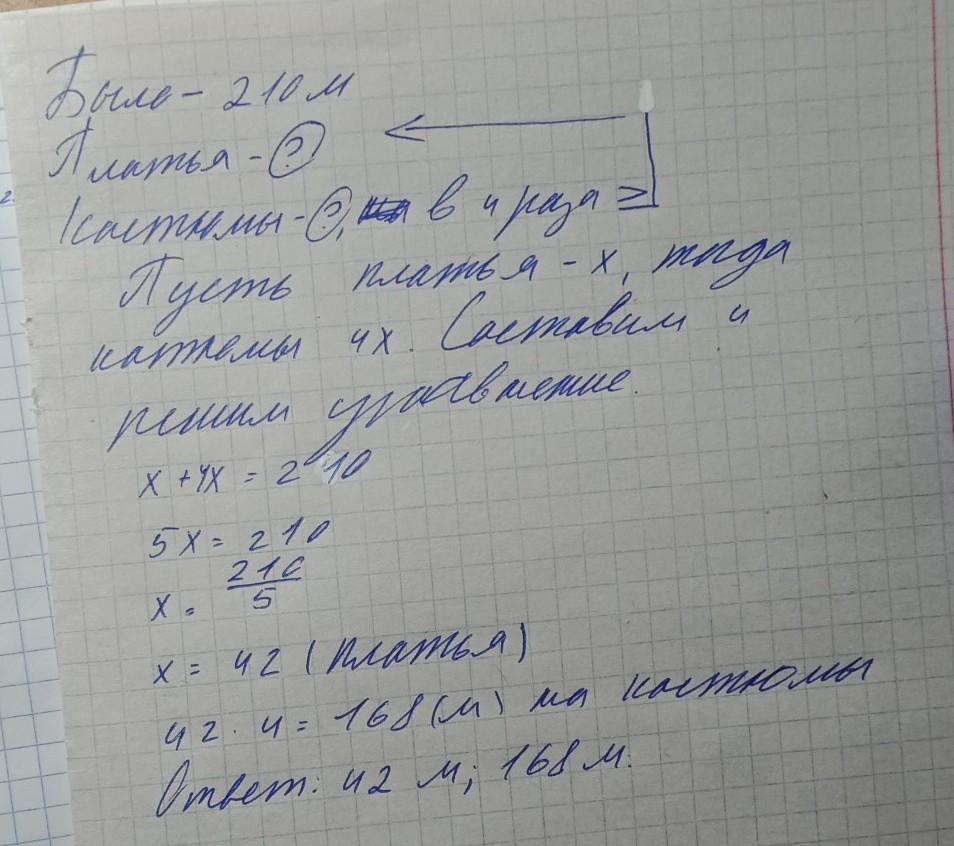 Было - 210 м
Платья - ?
Костюмы - ?, в 4 раза >
Пусть платья - х, тогда
костюмы 4х. Составим и
решим уравнение.
х + 4х = 210
5х = 210
х = 210/5
х = 42 (платья)
42 · 4 = 168 (м) на костюмы
Ответ: 42 м; 168 м.